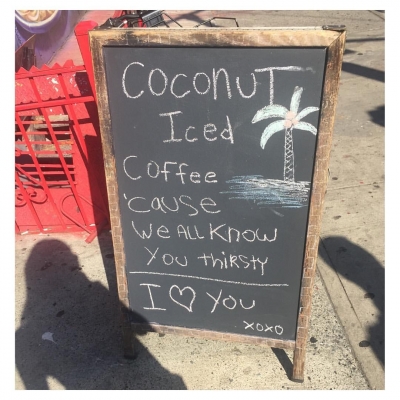 COCONUT
Iced
COFFee
'cause
We All Know
You thirsty
I ♡ You
xoxo